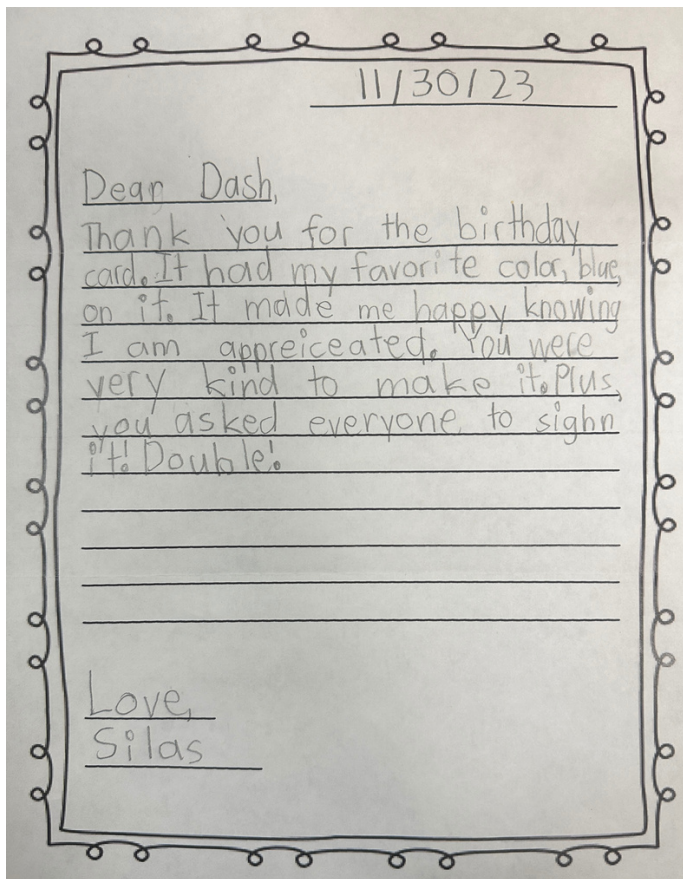 11/30/23
Dear Dash,
Thank you for the birthday
card. It had my favorite color, blue,
on it. It made me happy knowing
I am appreiceated. You were
very kind to make it. Plus,
you asked everyone to sighn
it! Double!
Love,
Silas